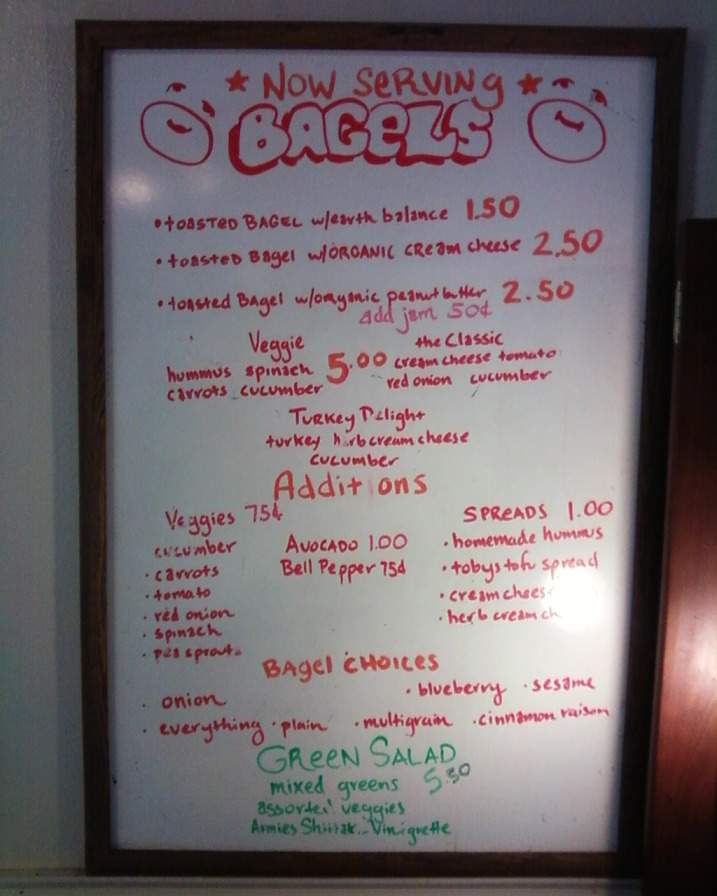 ★ NOW SERVING ★
BAGELS
• toasted BAGEL w/earth balance 1.50
• toasted Bagel w/ORGANIC cream cheese 2.50
• toasted Bagel w/organic peanut butter 2.50
add jam 50¢
Veggie
hummus spinach
carrots cucumber
5.00
the Classic
cream cheese tomato
red onion cucumber
Turkey Delight
turkey herb cream cheese
cucumber
Additions
Veggies 75¢
cucumber
• carrots
• tomato
• red onion
• spinach
• pea sprouts
Avocado 1.00
Bell Pepper 75¢
SPREADS 1.00
• homemade hummus
• tobys tofu spread
• cream chees
• herb cream ch
Bagel CHOICES
• onion • blueberry • sesame
• everything • plain • multigrain • cinnamon raison
GREEN SALAD
mixed greens 5.50
assorted veggies
Vinigrette